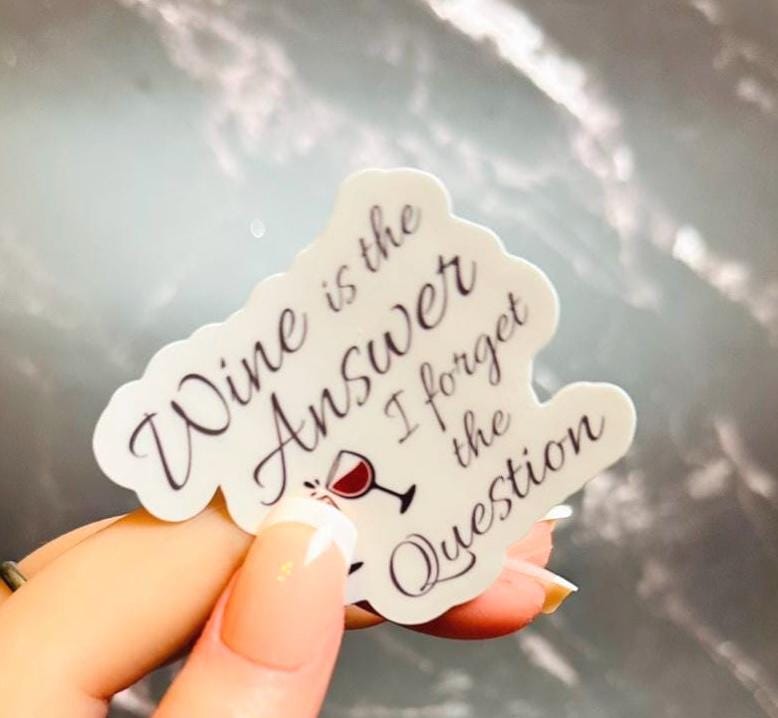 Wine is the
Answer
I forget
the
Question